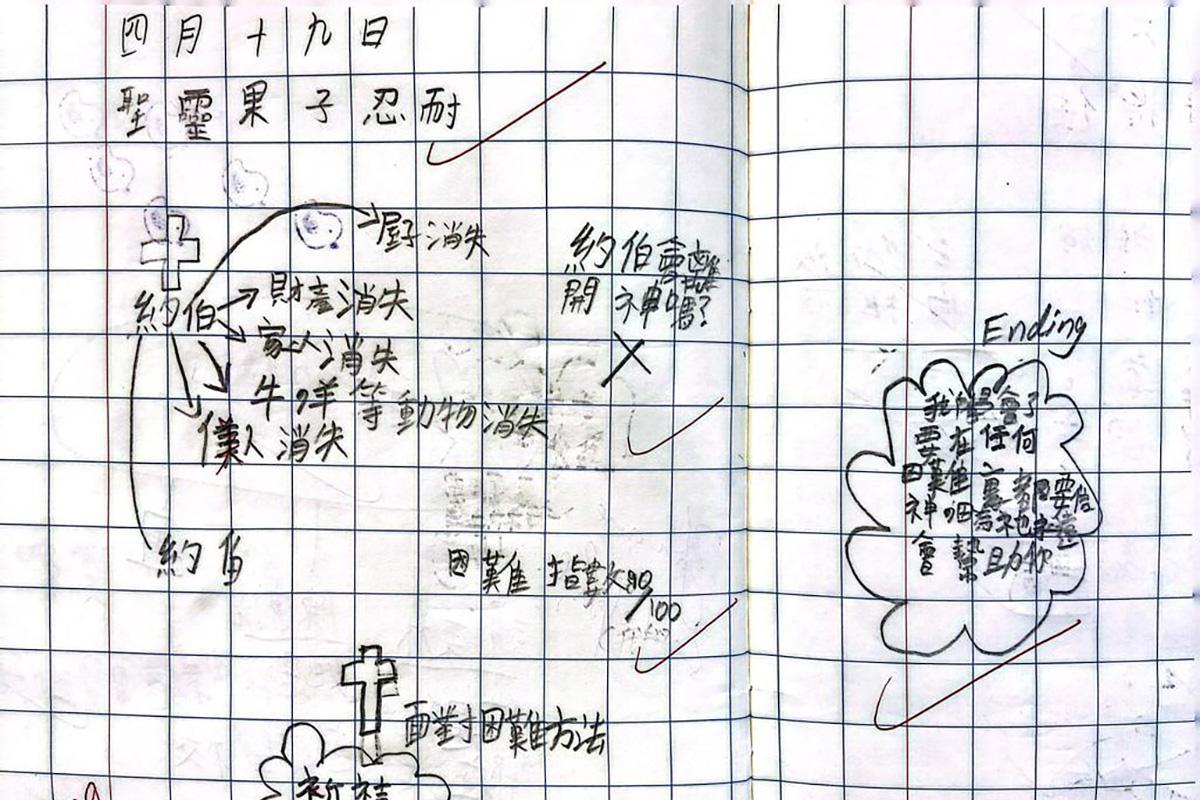 四月十九日
聖靈果子忍耐
屋子消失
約伯
財產消失
家人消失
牛咩等動物消失
僕人消失
約伯會離
開神嗎?
約伯
困難指數90/100
面對困難方法
祈禱
Ending
我們學會了
要在任何
困難裏都要信
神因為祂一定
會幫助你